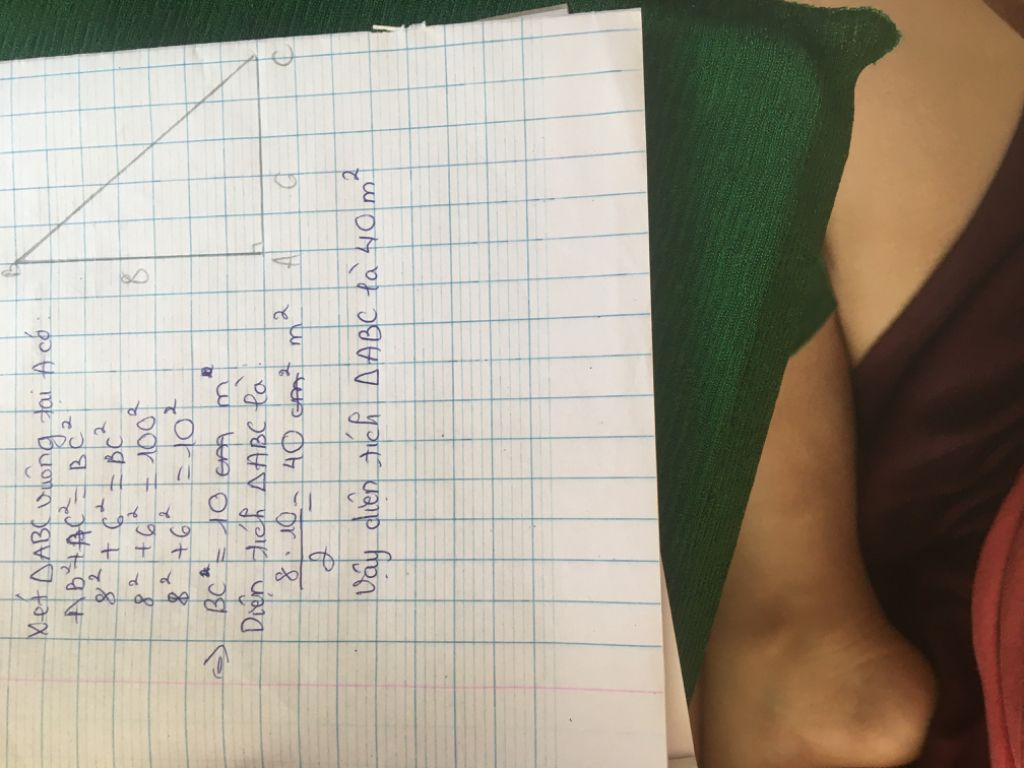 B
8
A
6
C
Xét ΔABC vuông tại A có:
AB² + AC² = BC²
8² + 6² = BC²
8² + 6² = 100²
8² + 6² = 10²
=> BC = 10 cm m
Diện tích ΔABC là:
8 . 10 / 2 = 40 cm² m²
Vậy diện tích ΔABC là 40 m²